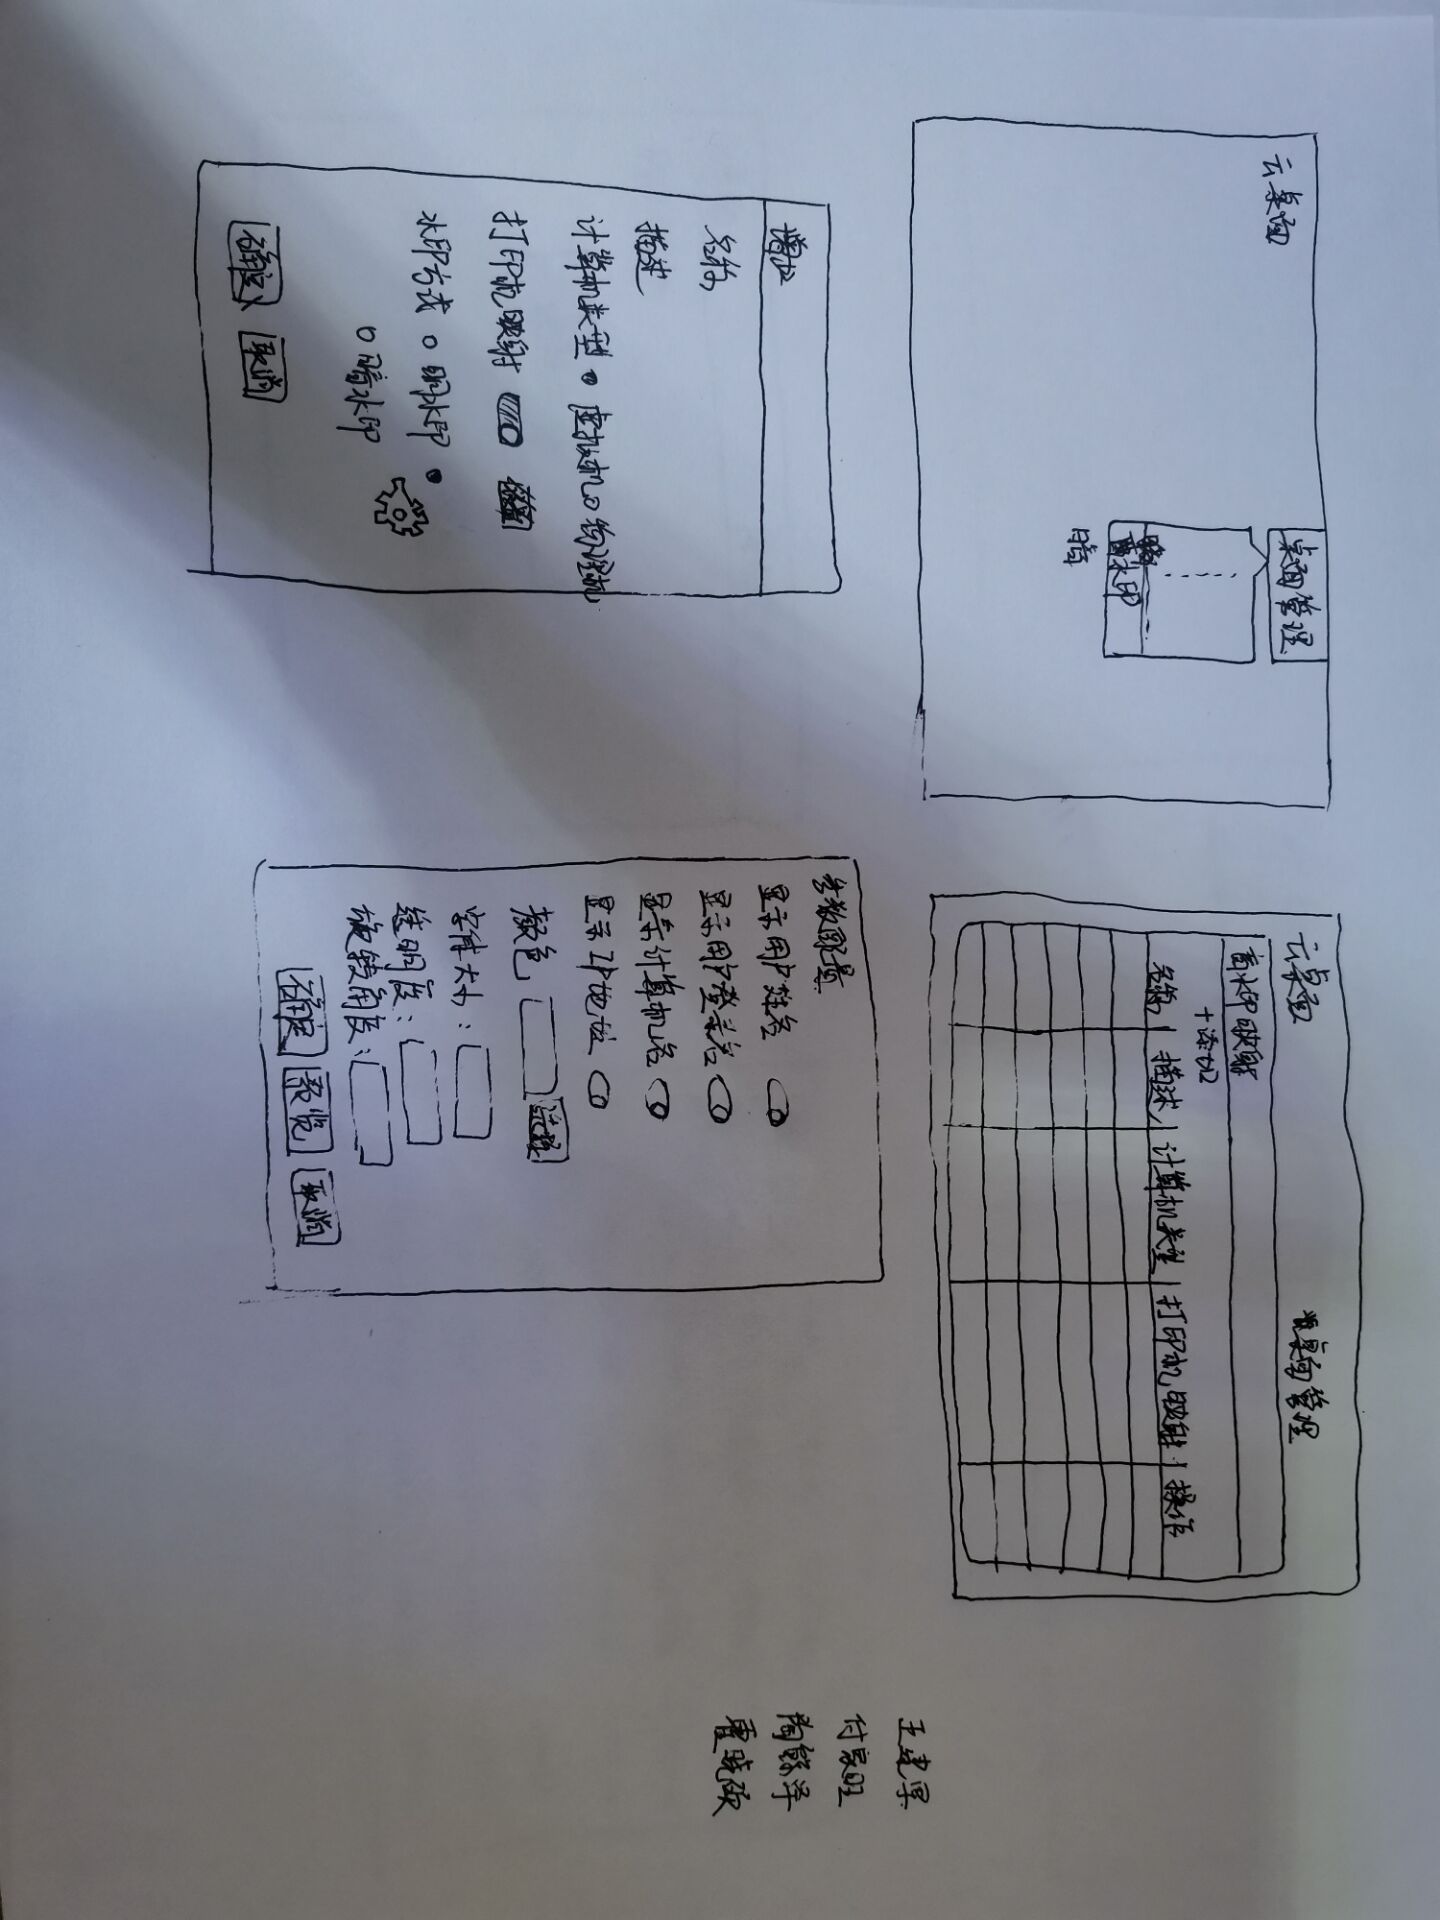 云桌面
桌面管理
水印
暗
云桌面
桌面管理
水印映射
+添加
名称 描述 计算机类型 打印机映射 操作
增加
名称
描述
计算机类型 虚拟机 物理机
打印机映射
水印方式 明水印
暗水印
确定 取消
参数配置
显示用户姓名
显示用户登录名
显示计算机名
显示IP地址
颜色 选择
字体大小:
透明度:
旋转角度:
确定 预览 取消
王建
付家旺
陶
晓欧